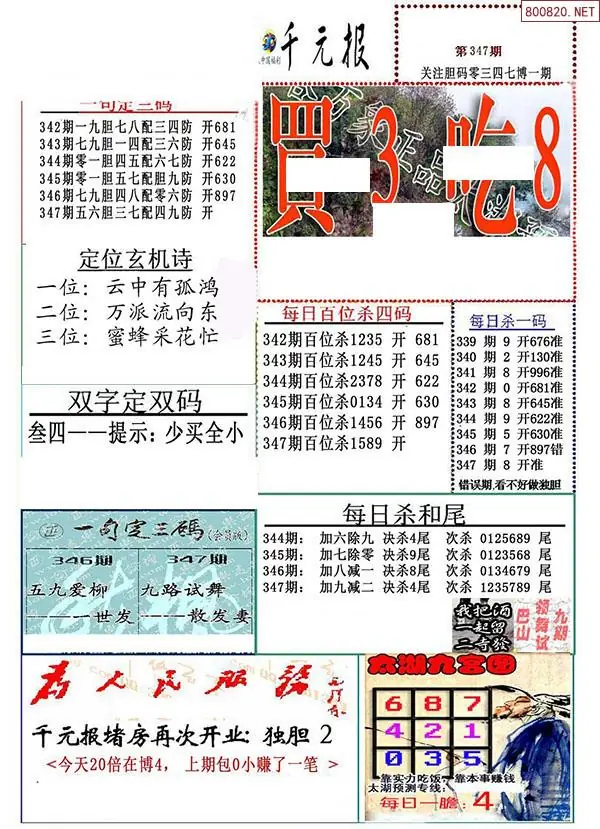 800820.NET
中国福利
千元报
第347期
关注胆码零三四七博一期
一句定三码
342期一九胆七八配三四防 开681
343期七九胆一四配三六防 开645
344期零一胆四五配六七防 开622
345期零一胆五七配胆九防 开630
346期七九胆四八配零六防 开897
347期五六胆三七配四九防 开
買 3 吃 8
定位玄机诗
一位: 云中有孤鸿
二位: 万派流向东
三位: 蜜蜂采花忙
每日百位杀四码
342期百位杀1235 开 681
343期百位杀1245 开 645
344期百位杀2378 开 622
345期百位杀0134 开 630
346期百位杀1456 开 897
347期百位杀1589 开
每日杀一码
339 期 9 开676准
340 期 2 开130准
341 期 8 开996准
342 期 0 开681准
343 期 8 开645准
344 期 9 开622准
345 期 5 开630准
346 期 7 开897错
347 期 8 开准
错误期,看不好做独胆
双字定双码
叁四——提示: 少买全小
每日杀和尾
344期: 加六除九 决杀4尾 次杀 0125689 尾
345期: 加七除零 决杀9尾 次杀 0123568 尾
346期: 加八减一 决杀8尾 次杀 0134679 尾
347期: 加九减二 决杀4尾 次杀 1235789 尾
正 一句定三碼(会员版)
346期 347期
五九爱柳 九路试舞
——世发 ——散发妻
我把酒
一起留
二寺發
巴山
领舞试
九期
为人民服务
千元报堵房再次开业: 独胆 2
<今天20倍在博4, 上期包0小赚了一笔 >
太湖九宫图
6 8 7
4 2 1
0 3 5
靠实力吃饭, 靠本事赚钱
太湖预测专线:
每日一膽: 4